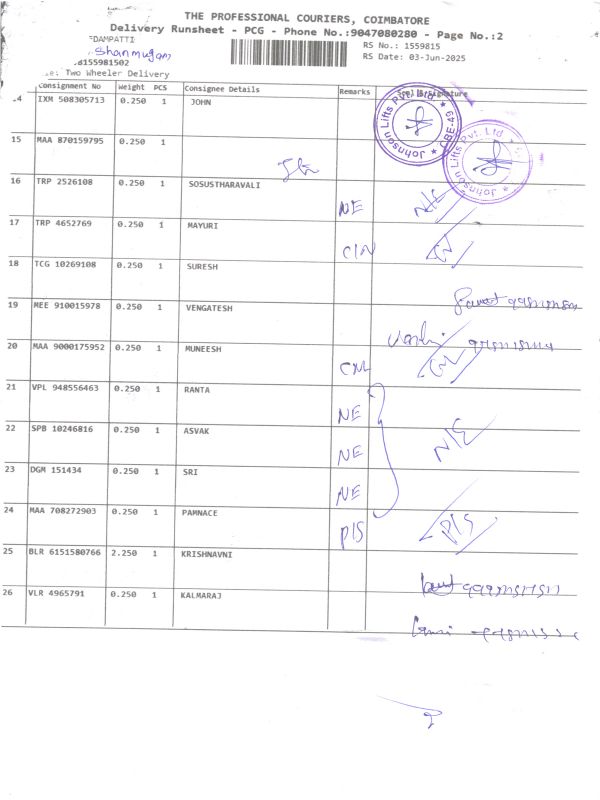 THE PROFESSIONAL COURIERS, COIMBATORE
Delivery Runsheet - PCG - Phone No.:9047080280 - Page No.:2
DAMPATTI
Shanmugam
8155981502
RS No.: 1559815
RS Date: 03-Jun-2025
e: Two Wheeler Delivery
Consignment No Weight PCS Consignee Details Remarks Signature
14 IXM 508305713 0.250 1 JOHN
Johnson Lifts Pvt. Ltd ★ CBE-49 ★
15 MAA 870159795 0.250 1
Johnson Lifts Pvt. Ltd
16 TRP 2526108 0.250 1 SOSUSTHARAVALI NE N/E
17 TRP 4652769 0.250 1 MAYURI
18 TCG 10269108 0.250 1 SURESH
19 MEE 910015978 0.250 1 VENGATESH
20 MAA 9000175952 0.250 1 MUNEESH
21 VPL 948556463 0.250 1 RANTA NE
22 SPB 10246816 0.250 1 ASVAK NE N/E
23 DGM 151434 0.250 1 SRI NE
24 MAA 708272903 0.250 1 PAMNACE P/S P/S
25 BLR 6151580766 2.250 1 KRISHNAVNI
26 VLR 4965791 0.250 1 KALMARAJ